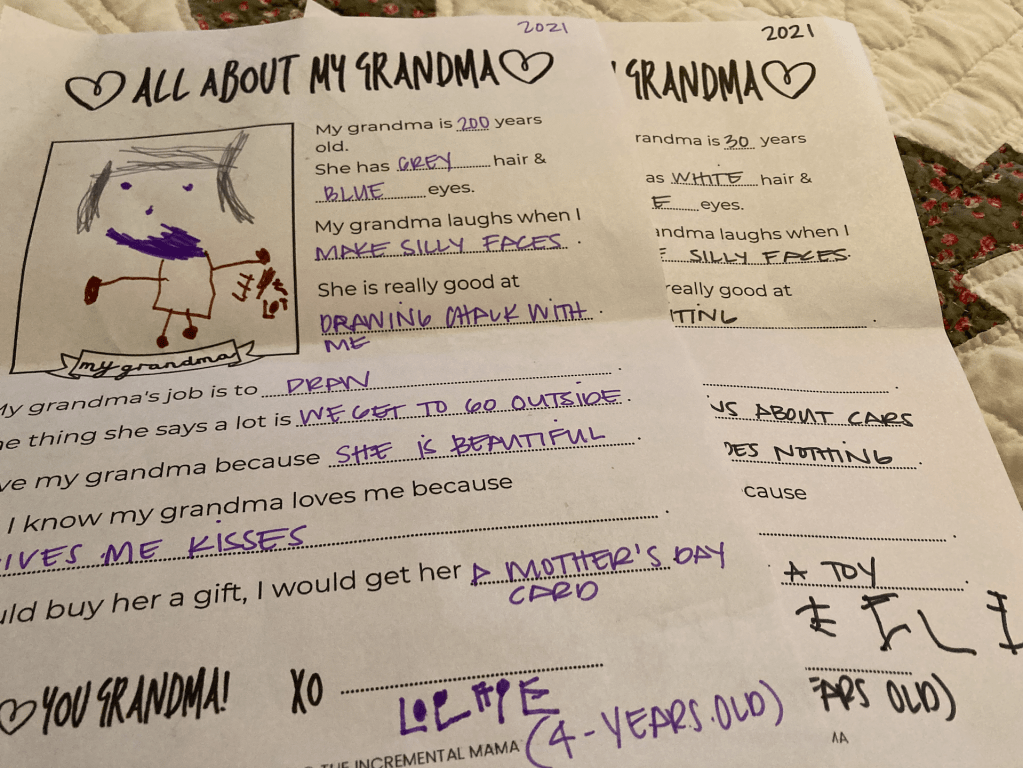 2021
ALL ABOUT MY GRANDMA
My grandma is 200 years
old.
She has GREY hair &
BLUE eyes.
My grandma laughs when I
MAKE SILLY FACES.
She is really good at
DRAWING CHALK WITH.
ME
my grandma
My grandma's job is to DRAW.
ne thing she says a lot is WE GET TO GO OUTSIDE.
ve my grandma because SHE IS BEAUTIFUL.
I know my grandma loves me because
IVES ME KISSES.
uld buy her a gift, I would get her A MOTHER'S DAY
CARD
YOU GRANDMA! XO
(4-YEARS OLD)
THE INCREMENTAL MAMA
2021
GRANDMA
randma is 30 years
as WHITE hair &
E eyes.
andma laughs when I
E SILLY FACES.
really good at
ITING.
US ABOUT CARS
OES NOTHING.
cause
A TOY.
ELI
EARS OLD)